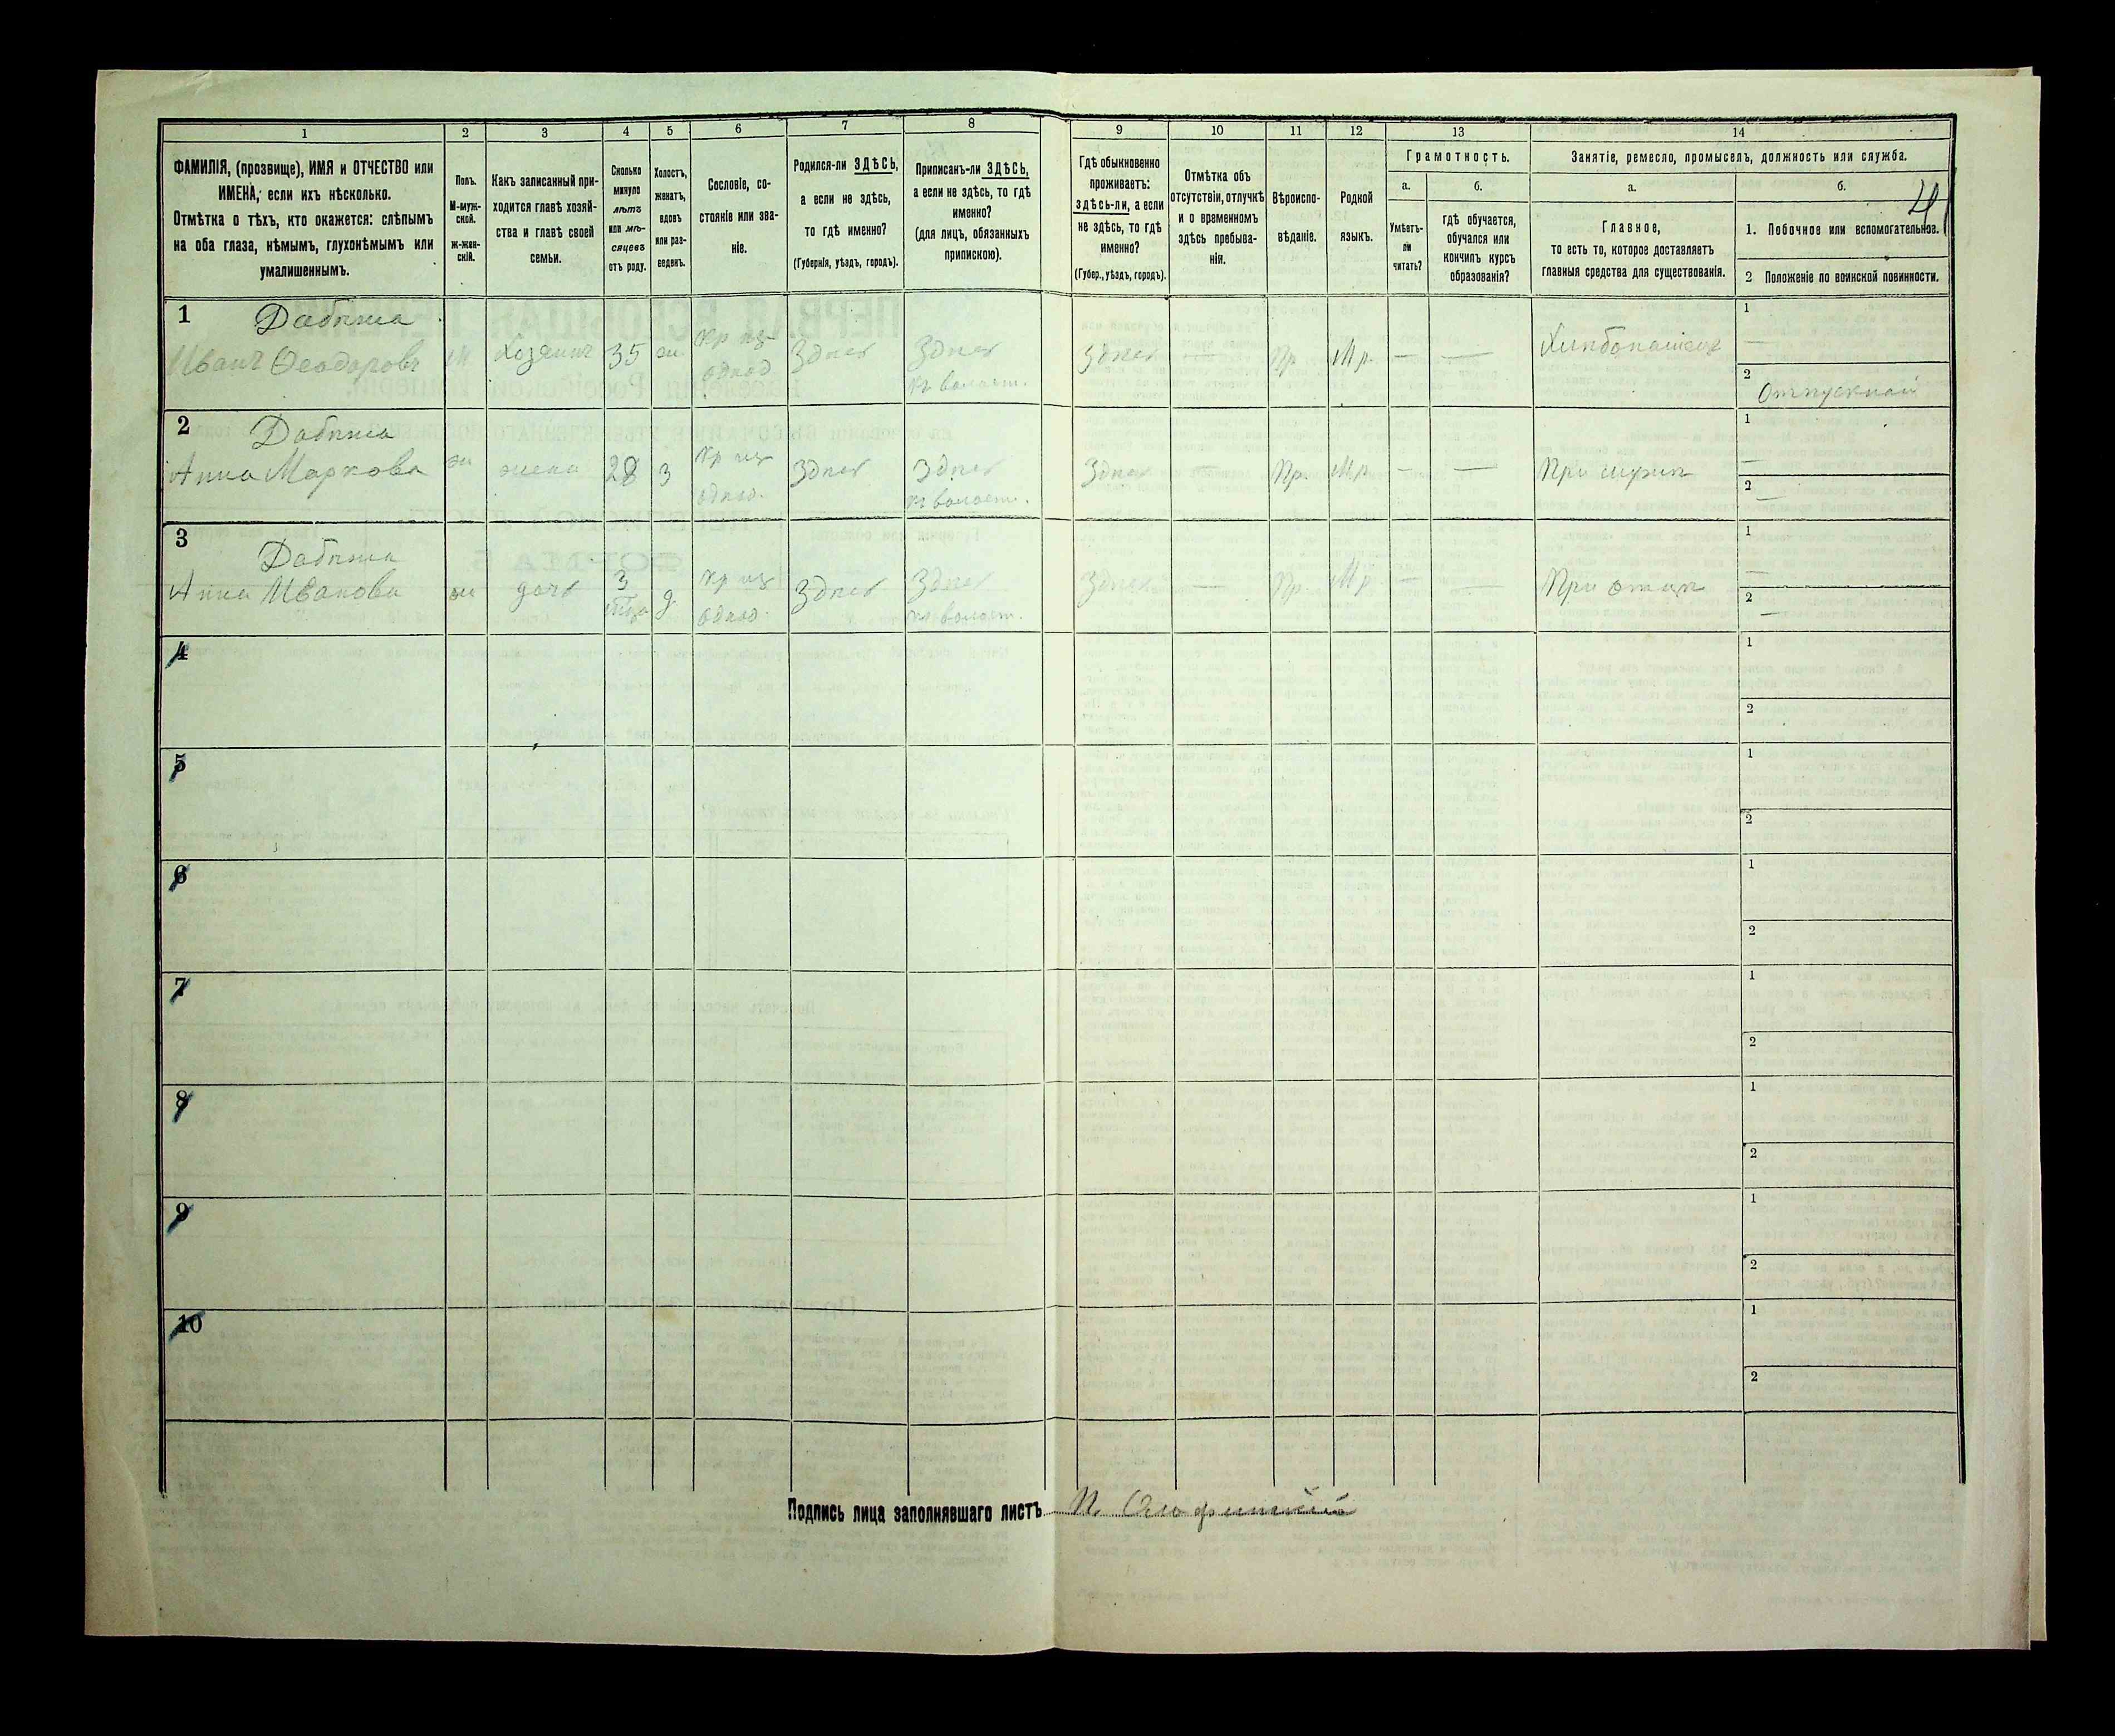 1 2 3 4 5 6 7 8 9 10 11 12 13 14
ФАМИЛІЯ, (прозвище), ИМЯ и ОТЧЕСТВО или
ИМЕНА, если ихъ нѣсколько.
Отмѣтка о тѣхъ, кто окажется: слѣпымъ
на оба глаза, нѣмымъ, глухонѣмымъ или
умалишеннымъ.
Полъ.
М-муж-
ской.
Ж-жен-
скій.
Какъ записанный при-
ходится главѣ хозяй-
ства и главѣ своей
семьи.
Сколько
минуло
лѣтъ
или мѣ-
сяцевъ
отъ роду.
Холостъ,
женатъ,
вдовъ
или раз-
веденъ.
Сословіе, со-
стояніе или зва-
ніе.
Родился-ли ЗДѢСЬ,
а если не здѣсь,
то гдѣ именно?
(Губернія, уѣздъ, городъ).
Приписанъ-ли ЗДѢСЬ,
а если не здѣсь, то гдѣ
именно?
(для лицъ, обязанныхъ
припискою).
Гдѣ обыкновенно
проживаетъ:
здѣсь-ли, а если
не здѣсь, то гдѣ
именно?
(Губер., уѣздъ, городъ).
Отмѣтка объ
отсутствіи, отлучкѣ
и о временномъ
здѣсь пребыва-
ніи.
Вѣроиспо-
вѣданіе.
Родной
языкъ.
Грамотность.
а.
Умѣетъ-
ли
читать?
б.
гдѣ обучается,
обучался или
кончилъ курсъ
образованія?
Занятіе, ремесло, промыселъ, должность или служба.
а.
Главное,
то есть то, которое доставляетъ
главныя средства для существованія.
б.
1. Побочное или вспомогательное.
2 Положеніе по воинской повинности.
1 Дабижа
Иванъ Ѳеодоровъ м Хозяинъ 35 ж
Здѣсь Здѣсь
къ волост.
Здѣсь — Пр. Мр. — — Хлѣбопашецъ
1 —
2 Отпускной
2 Дабижа
Анна Маркова ж жена 28 з
Здѣсь Здѣсь
къ волост.
Здѣсь — Пр. Мр. — — При мужѣ
1 —
2 —
3 Дабижа
Анна Иванова ж дочь 3 д
Здѣсь Здѣсь
къ волост.
Здѣсь — Пр. Мр. — — При отцѣ
1 —
2 —
4
1
2
5
1
2
6
1
2
7
1
2
8
1
2
9
1
2
10
1
2
Подпись лица заполнявшаго листъ